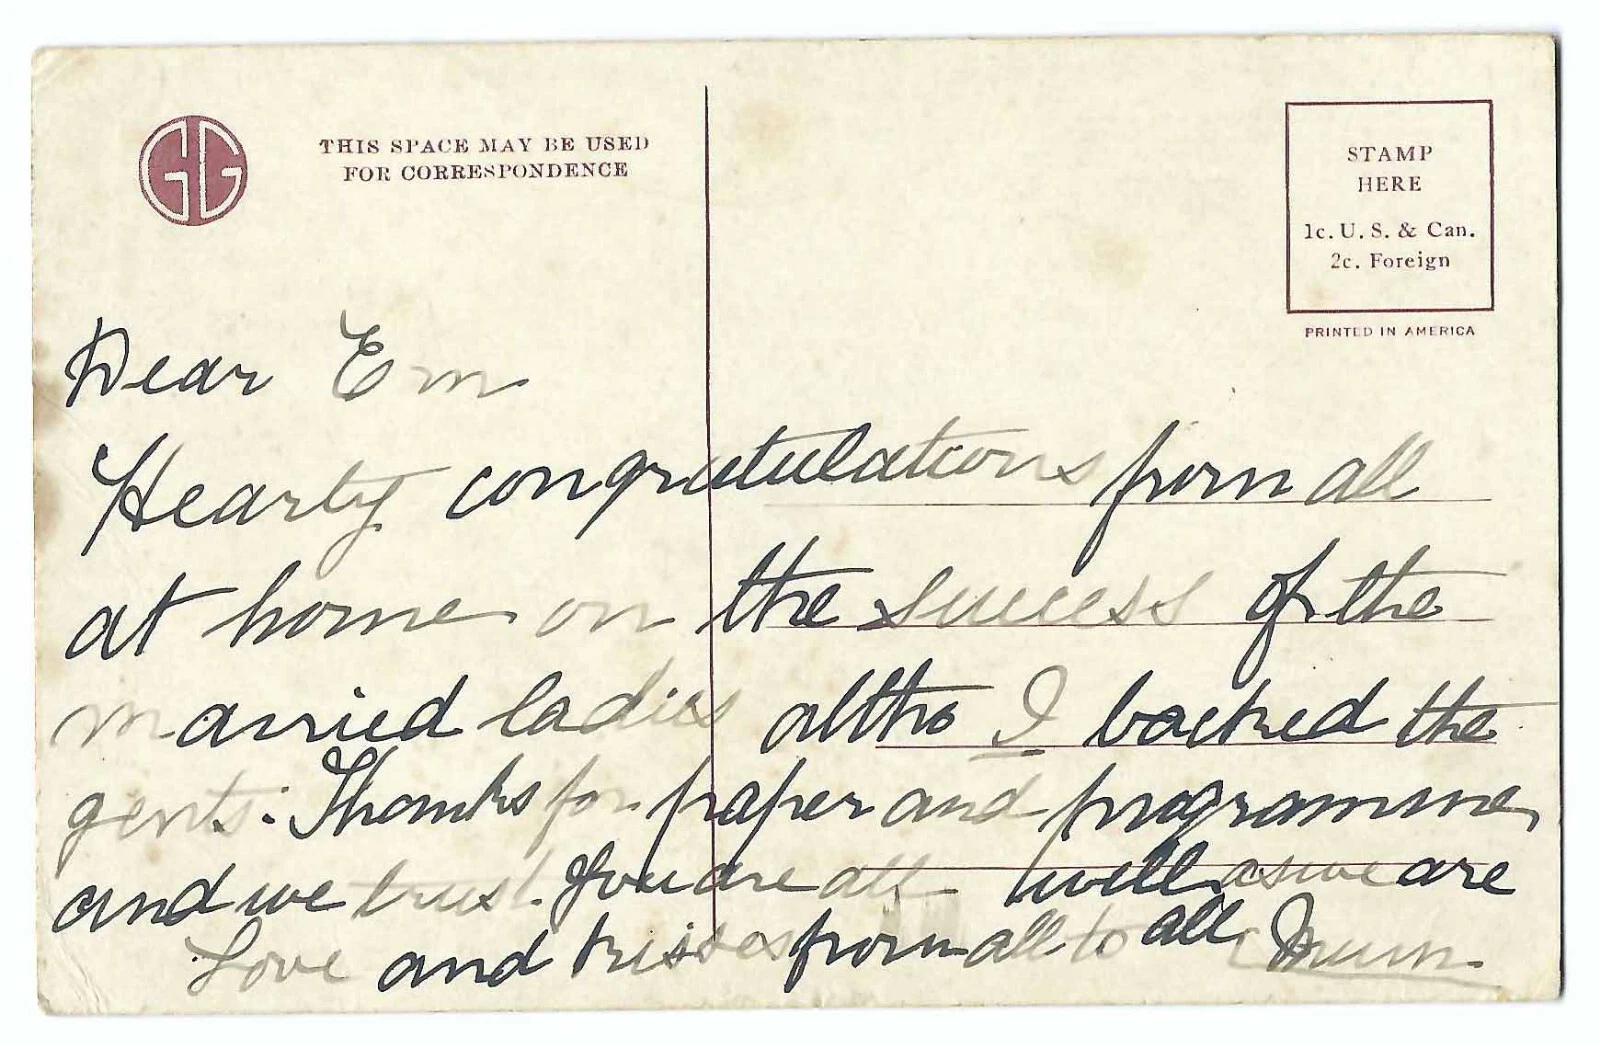 GG
THIS SPACE MAY BE USED
FOR CORRESPONDENCE
STAMP
HERE
1c. U. S. & Can.
2c. Foreign
PRINTED IN AMERICA
Dear Em
Hearty congratulations from all
at home on the success of the
married ladies altho I backed the
gents. Thanks for paper and programme
and we trust you are all well as we are
Love and kisses from all to all Mum.